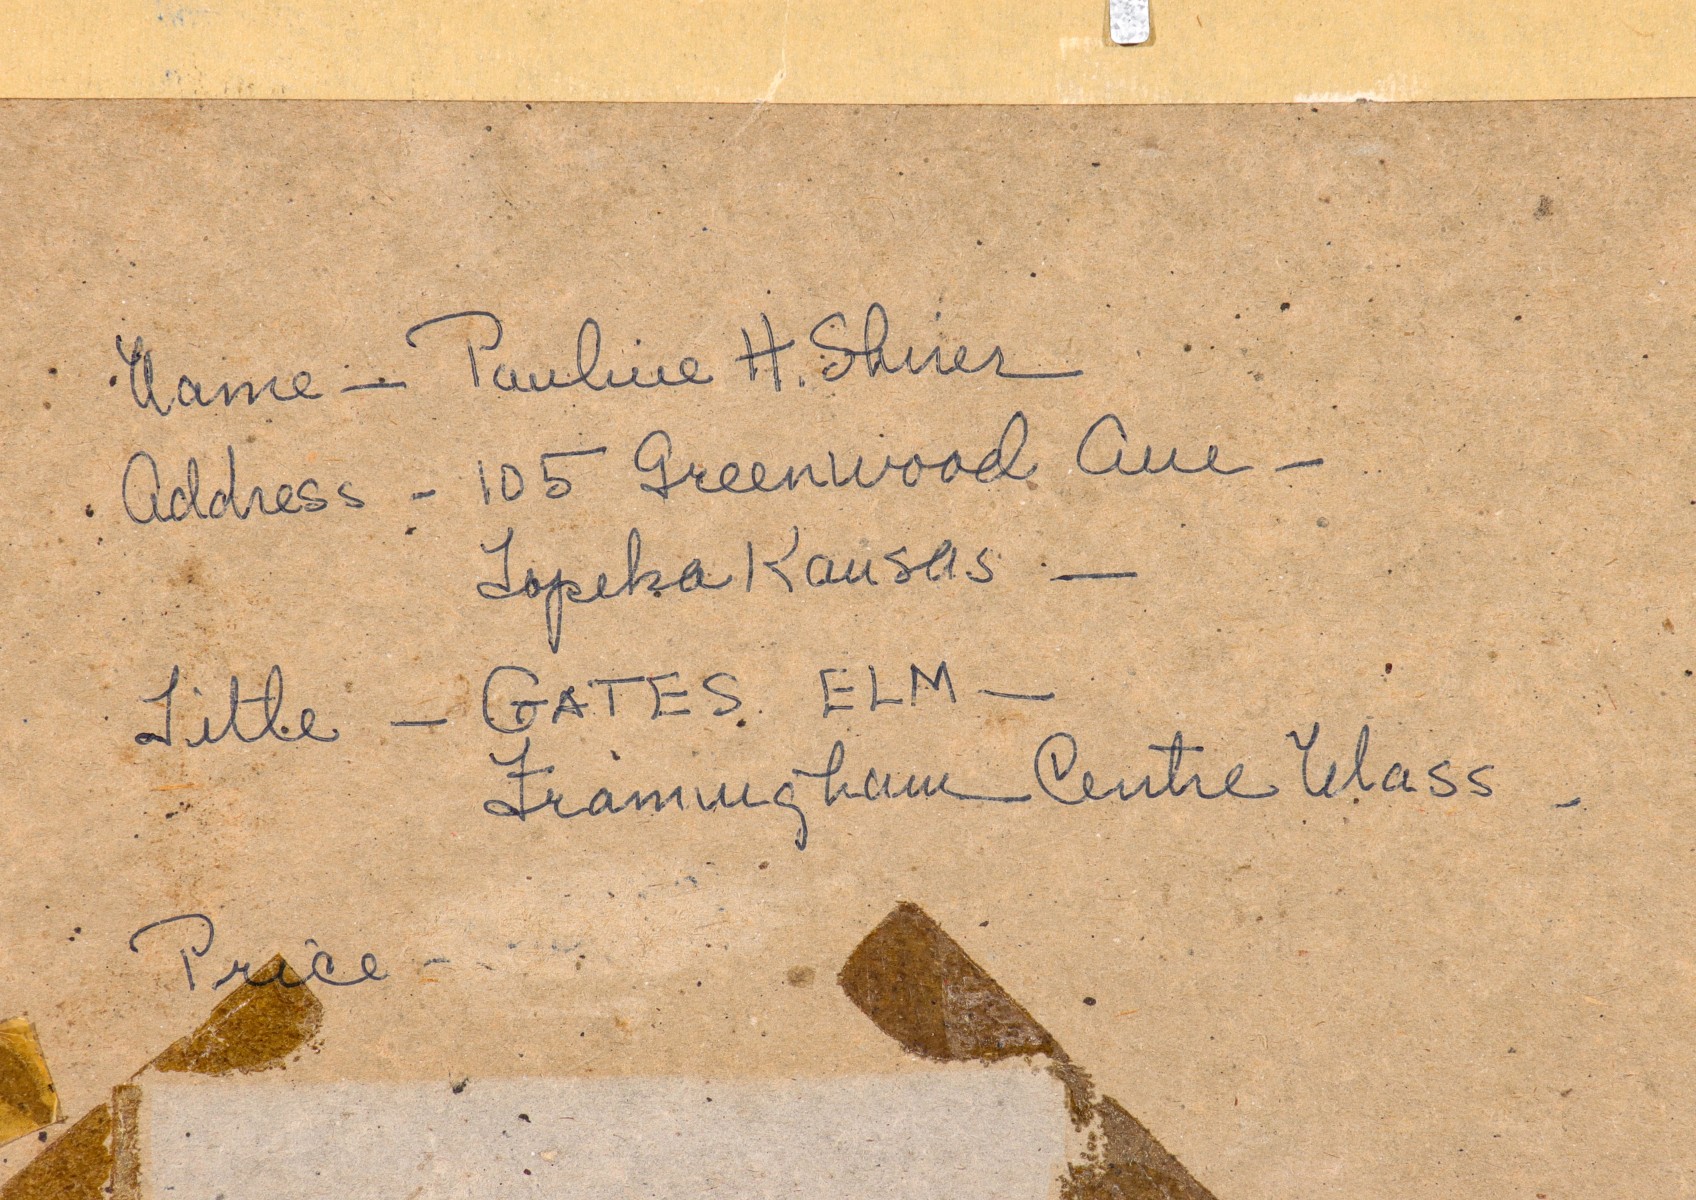 Name - Pauline H. Shirer
Address - 105 Greenwood Ave -
Topeka Kansas -
Title - GATES ELM -
Framingham Centre Mass -
Price -